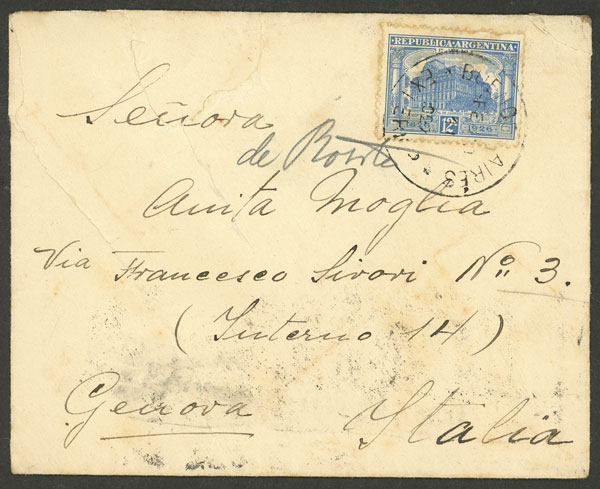 REPUBLICA ARGENTINA
12
BUENOS AIRES
Señora
de
Anita Moglia
Via Francesco Sivori Nº 3.
(Interno 14)
Genova Italia